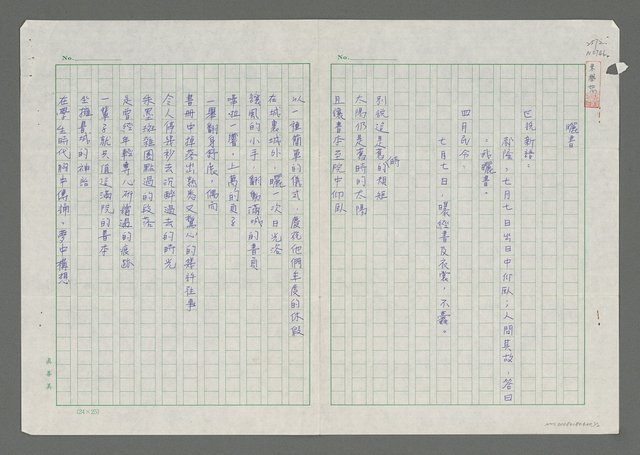 曬書
世說新語：
郝隆，七月七日出日中仰臥；人問其故，答曰
我曬書。
四月民令：
七月七日，曝經書及衣裳，不蠹。
別說這是舊的模矩
師
太陽仍是舊時的太陽
且讓書本至院中仰臥
以一種簡單的儀式，慶祝他們年度的休假
在城裏城外，曬一次日光浴
讓風的小手，翻動滿城的書頁
嘩啦一響，上萬的頁子
一舉翻身舒展，偶而
書冊中掉落出熟悉又驚心的幾件往事
令人停幾秒去沉醉過去的時光
朱墨斑雜圈點過的段落
是曾經年輕專心研讀過的痕跡
一輩子就只值這滿院的書本
坐擁書城的神話
在學生時代胸中傳誦，夢中構想
No.
No.
(24×25)